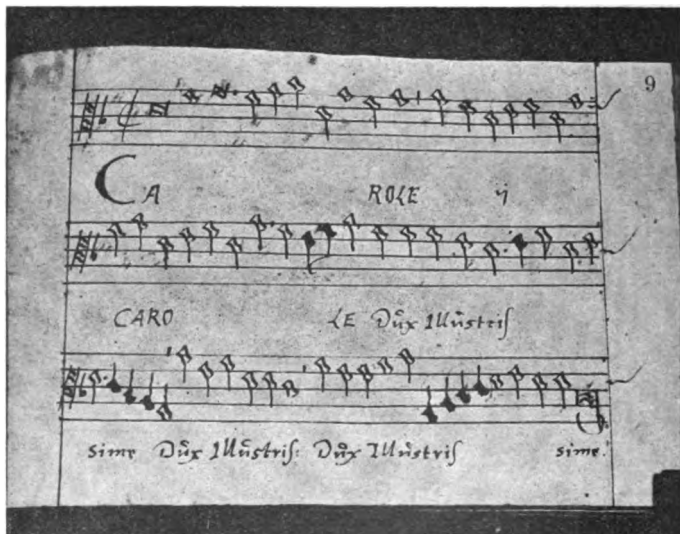 9
CA ROLE ij
CARO LE Dux Illustris
sime Dux Illustris: Dux Illustris sime.